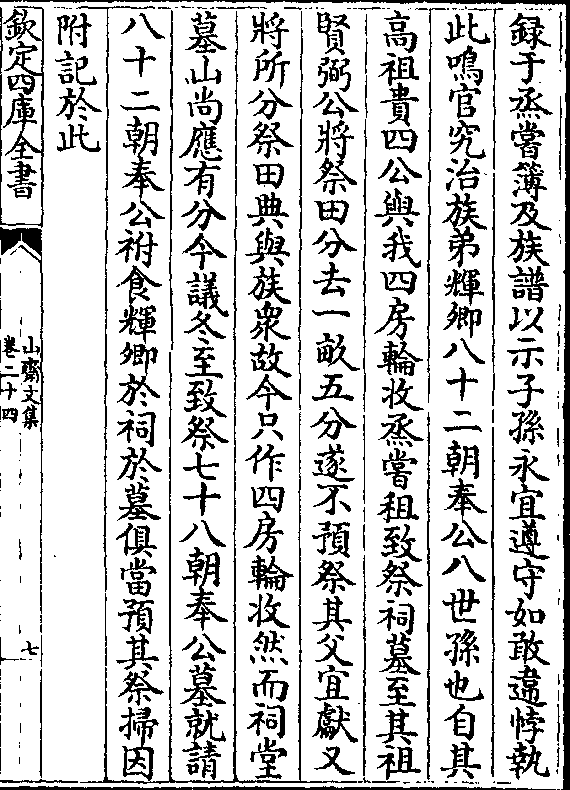 録于烝嘗簿及族譜以示子孫永宜遵守如敢違悖執
此鳴官究治族弟輝卿八十二朝奉公八世孫也自其
高祖貴四公與我四房輪收烝嘗祖致祭祠墓至其祖
賢弼公將祭田分去一畝五分遂不預祭其父宜獻又
將所分祭田典與族衆故今只作四房輪收然而祠堂
墓山尚應有分今議冬至致祭七十八朝奉公墓就請
八十二朝奉公祔食輝卿於祠於墓俱當預其祭掃因
附記於此
欽定四庫全書
山齋文集
卷二十四
七